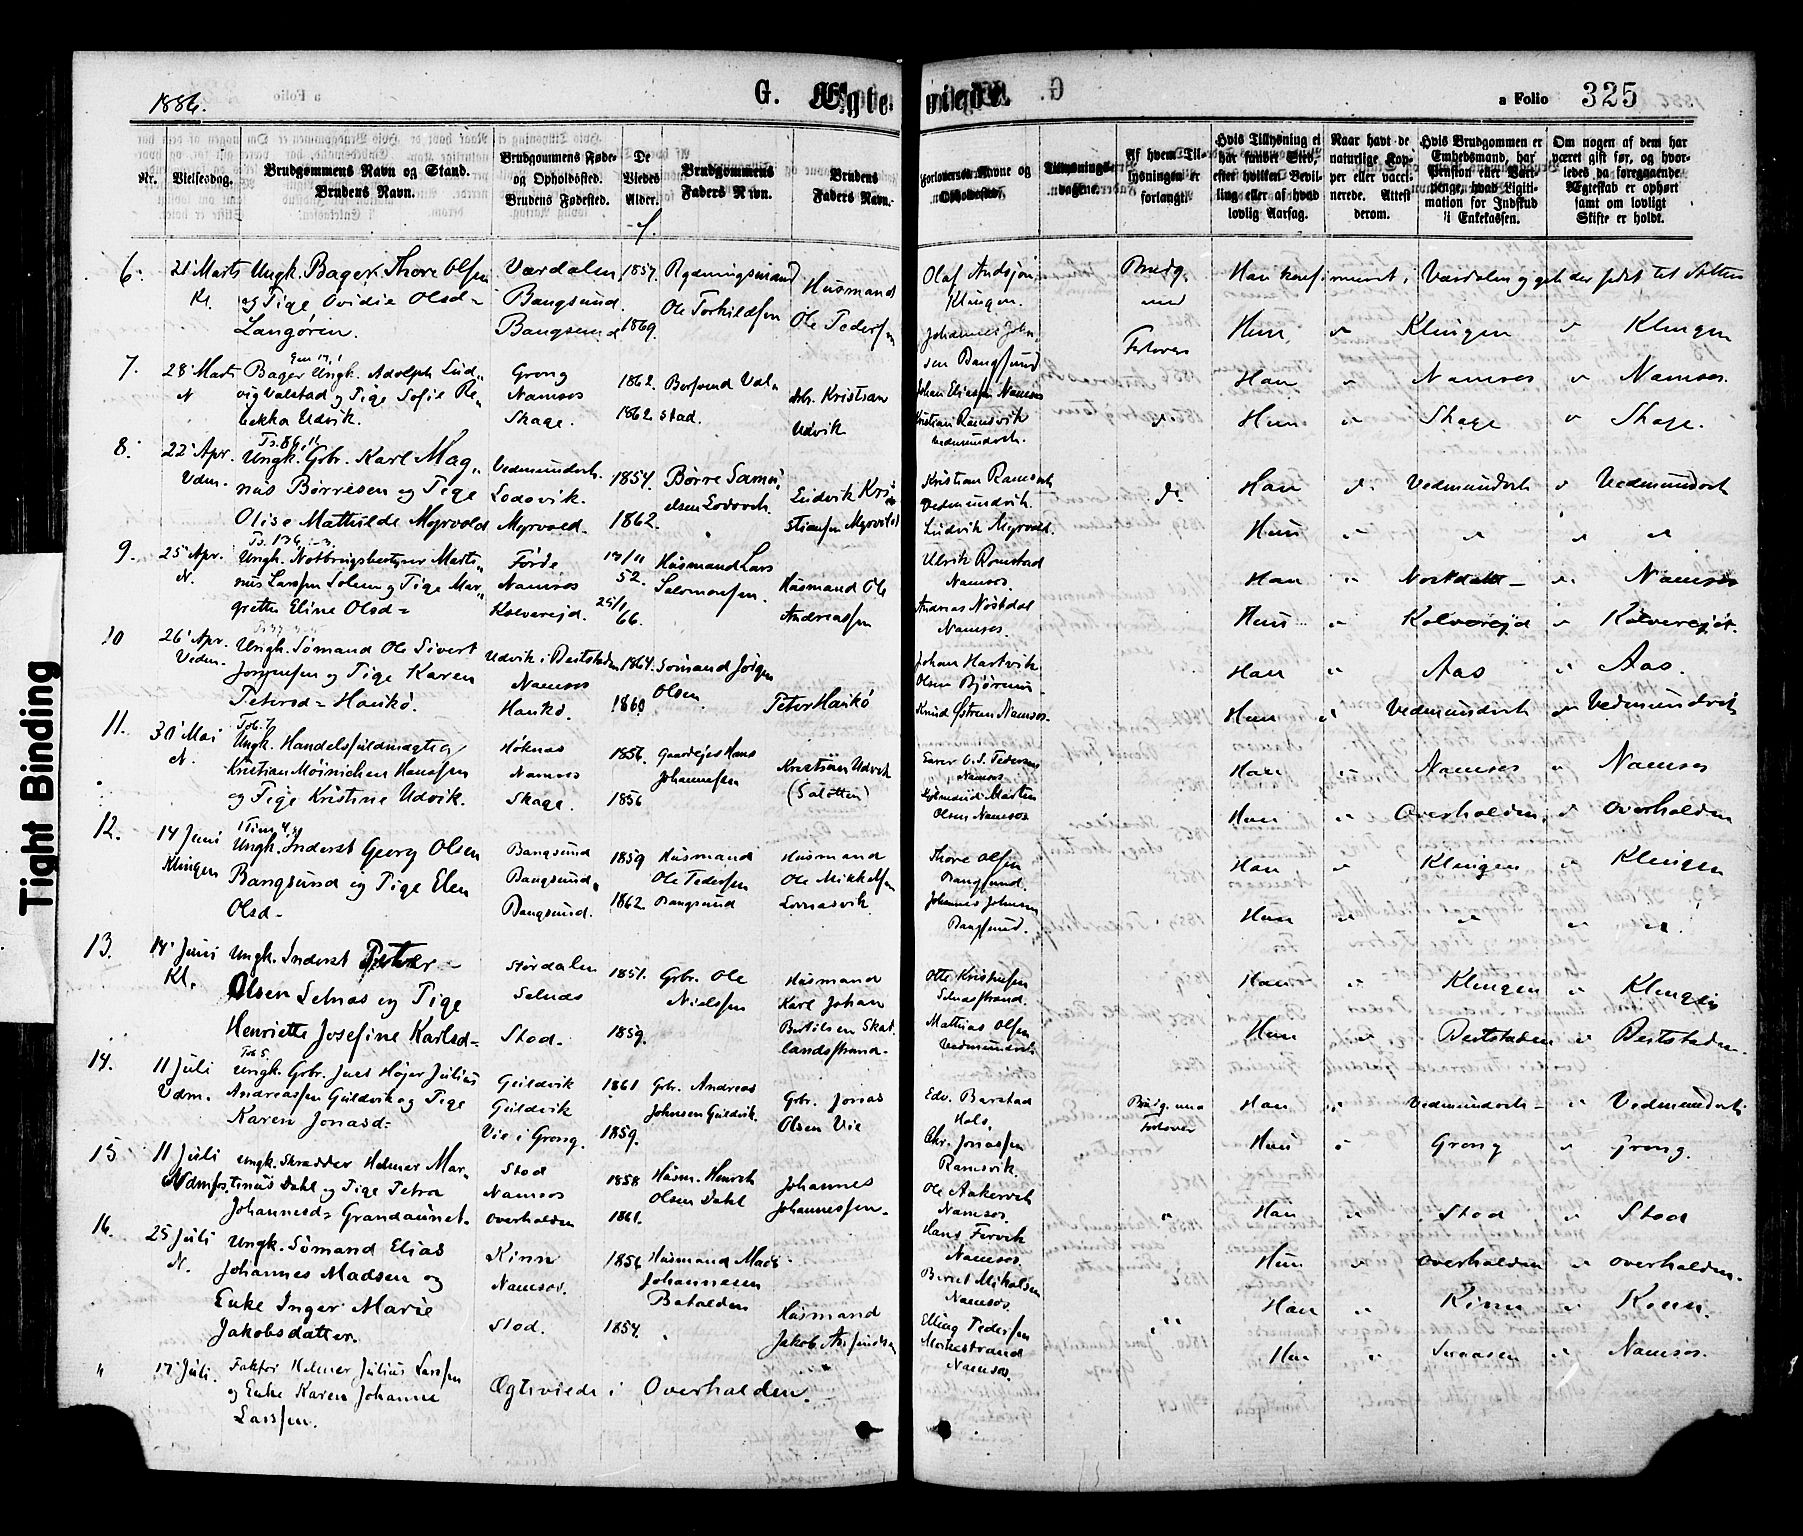 1886.
G. Ægteviede.
a Folio 325
Nr.
Vielsesdag.
Brudgommens Navn og Stand.
Brudens Navn.
Brudgommens Føde-
og Opholdsted.
Brudens Fødested.
De
Viedes
Alder.
Brudgommens
Faders Navn.
Brudens
Faders Navn.
Forlovernes Navne og
Tillysnings-
dagene.
Af hvem Til-
lysningen er
forlangt.
Hvis Tillysning ei
har fundet Sted,
efter hvilken Bevil-
ling eller af hvad
lovlig Aarsag.
Naar havt de
naturlige Kop-
per eller vacci-
nerede. Attest
derom.
Hvis Brudgommen er
Embedsmand, har
Pension eller Vart-
penge, hvad Ligiti-
mation for Indskud
i Enkekassen.
Om nogen af dem har
været gift før, og hvor-
ledes da foregaaende
Ægteskab er ophørt
samt om lovligt
Skifte er holdt.
6. 21 Marts Kl.
Ungk. Bager, Thore Olsen
og Pige Ovidie Olsd=
Langøren.
Værdalen
Bangsund.
Bangsund
1857.
1869.
Rydningsmand
Ole Torkildsen
Husmand
Ole Pedersen
Olaf Andsjøn
Klingen.
Johannes John
sen Bangsund
Brudg.
med
Forlover
Han konfirmeret, Værdalen og
Hun " Klingen " Klingen
7. 28 Marts N
Bager Ungk. Adolph Lud-
vig Valstad og Pige Sofie Re-
bekka Udvik.
Grong
Namsos
Skage.
1862.
1862.
Valstad
Kristian
Udvik
Johan Eliesen Namsos
Kristian Ramsvik
Vedmundvik.
Han " Namsos " Namsos.
Hun " Skage " Skage.
8. 22 Apr. Vedm.
Ungk. Gbr. Karl Mag-
nus Børresen og Pige
Olise Mathilde Myrvold
Vedmundvik.
Lodovik.
Myrvold.
1854.
1862.
Børre Samu-
elsen Lodovik.
Ludvik Kri-
stiansen Myrvold
Kristian Ramsvik
Vedmundvik.
Ludvik Myrvold.
Han " Vedmundvik " Vedmundvik
Hun " " " "
9. 25 Apr. N.
Ungk. Notbrugsbestyrer Marti-
nus Larssen Solum og Pige Mar-
grethe Eline Olsd=
Førde
Namsos
Kolvereid.
13/11
52.
25/1
66.
Husmand Lars
Salomonsen.
Husmand Ole
Andreassen
Ulrik Romstad
Namsos.
Andreas Nøstdal
Namsos.
Han " " Namsos
Hun " Kolvereid " Kolvereid.
10 26 Apr. Vedm.
Ungk. Sømand Ole Sivert
Jørgensen og Pige Karen
Petersd= Haukø.
Udvik i Beitstaden
Namsos
Haukø.
1864.
1860
Sømand Jørgen
Olsen.
Peter Haukø
Johan Hartvik
Olsen Bjørum
Knud Østrem Namsos.
Han " Aas " Aas.
Hun " Vedmundvik " Vedmundvik
11. 30 Mai N.
Ungk. Handelsfuldmægtig
Kristian Moinichen Hanssen
og Pige Kristine Udvik.
Høknes
Namsos
Skage.
1856.
1856
Gaardejer Hans
Johannesen
Kristian Udvik
O. S. Pedersen
Namsos
Martin
Olsen Namsos
Han " Namsos " Namsos
Hun " Overhalden " Overhalden
12. 14 Juni Klingen
Ungk. Inderst Georg Olsen
Bangsund og Pige Elen
Olsd-
Bangsund
Bangsund.
Bangsund.
1859
1862.
Husmand
Ole Pedersen
Bangsund
Husmand
Ole Mikkelsen
Lornæsvik.
Thore Olsen
Bangsund.
Johannes Johnsen
Bangsund.
Han " Klingen " Klingen
Hun " " " "
13. 14 Juni Kl.
Ungk. Inderst Petter
Olsen Selnæs og Pige
Henriette Josefine Karlsd=
Størdalen
Selnæs
Stod.
1851.
1859.
Gbr. Ole
Nielssen
Husmand
Karl Johan
Bertilsen Skat
landsstrand.
Otto Kristensen
Selnæsstrand.
Mathias Olsen
Vedmundvik.
Han " Klingen " Klingen
Hun " Beitstaden " Beitstaden.
14. 11 Juli Vdm.
Ungk. Gbr. Juel Højer Julius
Andreassen Guldvik og Pige
Karen Jonasd=
Guldvik
Guldvik
Vie i Grong.
1861
1859.
Gbr. Andreas
Johnsen Guldvik.
Gbr. Jonas
Olsen Vie
Edv. Barstad
Hals.
Chr. Jonassen
Ramsvik.
Brudg. med
Forlover
Han " Vedmundvik- " Vedmundvik.
Hun " Grong " Grong.
15 11 Juli
Ungk. Skrædder Helmer Mar-
tinus Dahl og Pige Petra
Johannesd= Grandaunet.
Stod
Namsos
Overhalden
1858
1861.
Husm. Henrik
Olsen Dahl
Johannes
Johannessen.
Ole Aakervik
Namsos.
Hans Fervik
Namsos.
Han " Stod " Stod
Hun " Overhalden " Overhalden.
16. 25 Juli N.
Ungk. Sømand Elias
Johannes Madsen og
Enke Inger Marie
Jakobsdatter.
Kinn
Namsos.
Stod.
1856
1854.
Husmand Mads
Johannesen
Batalden
Husmand
Jakob
Bernt Mikalsen
Namsos.
Elling Pedersen
Merkestrand
Namsos.
Han " Kinn " Kinn.
Hun " Snaasen " Namsos.
" 17 Juli.
Faktor Helmer Julius Larssen
og Enke Karen Johanne
Larssen.
Ægteviede i Overhalden.
Tight Binding